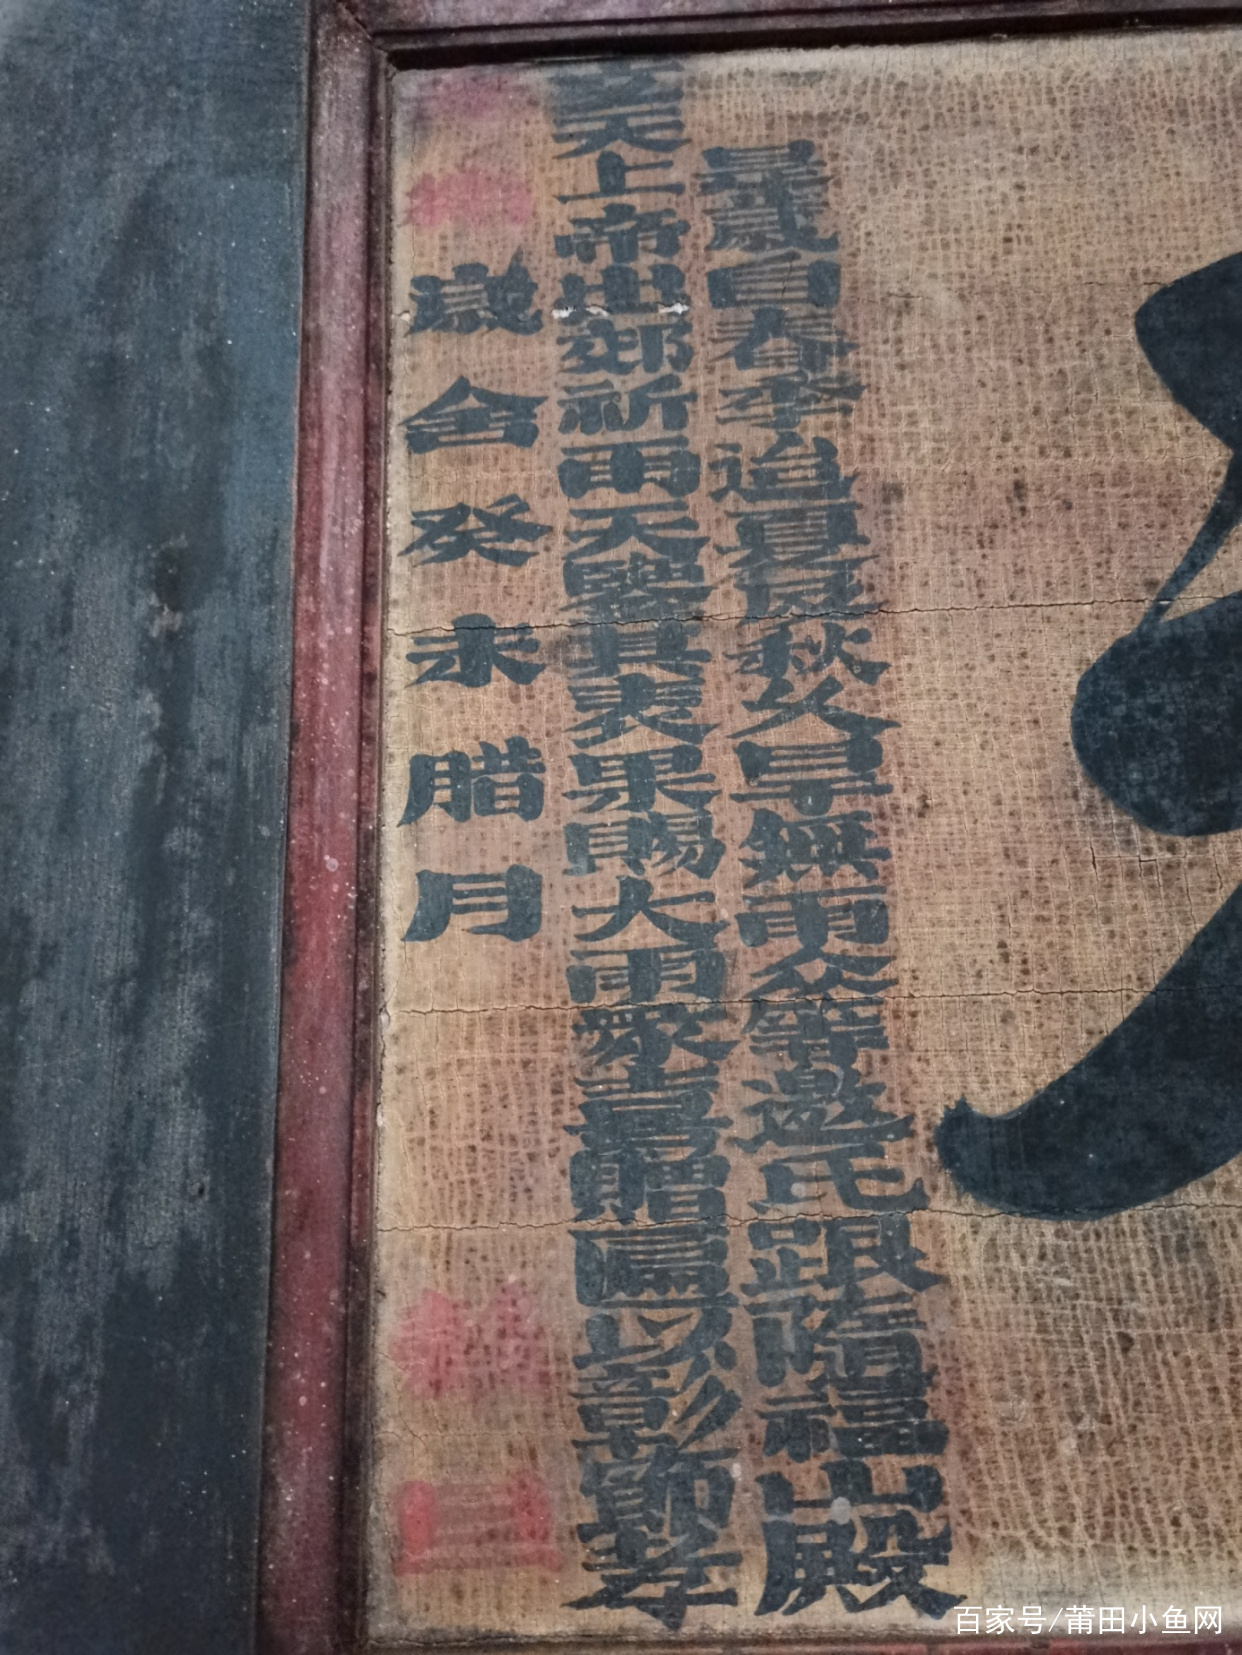 是歲自春季迨夏歷秋久旱無雨众等邀氏跟隨福山殿
玄天上帝出郊祈雨天鑒其衷果賜大雨眾喜贈匾以彰顯孝
歲舍癸未腊月
百家号/莆田小鱼网